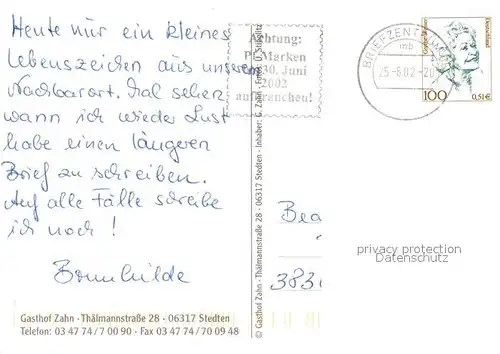 Heute nur ein kleines
Lebenszeichen aus unserem
Nachbarort. Mal sehen
wann ich wieder Lust
habe einen längeren
Brief zu schreiben.
Auf alle Fälle schreibe
ich noch!
Brunhilde
Gasthof Zahn · Thälmannstraße 28 · 06317 Stedten
Telefon: 03 47 74/7 00 90 · Fax 03 47 74/70 09 48
© Gasthof Zahn · Thälmannstraße 28 · 06317 Stedten · Inhaber: G. Zahn
Achtung:
Marken
30. Juni
2002
aufbrauchen!
BRIEFZENTRUM
mb
25-6.02-20
Deutschland
100
0,51€
Bea
383
privacy protection
Datenschutz